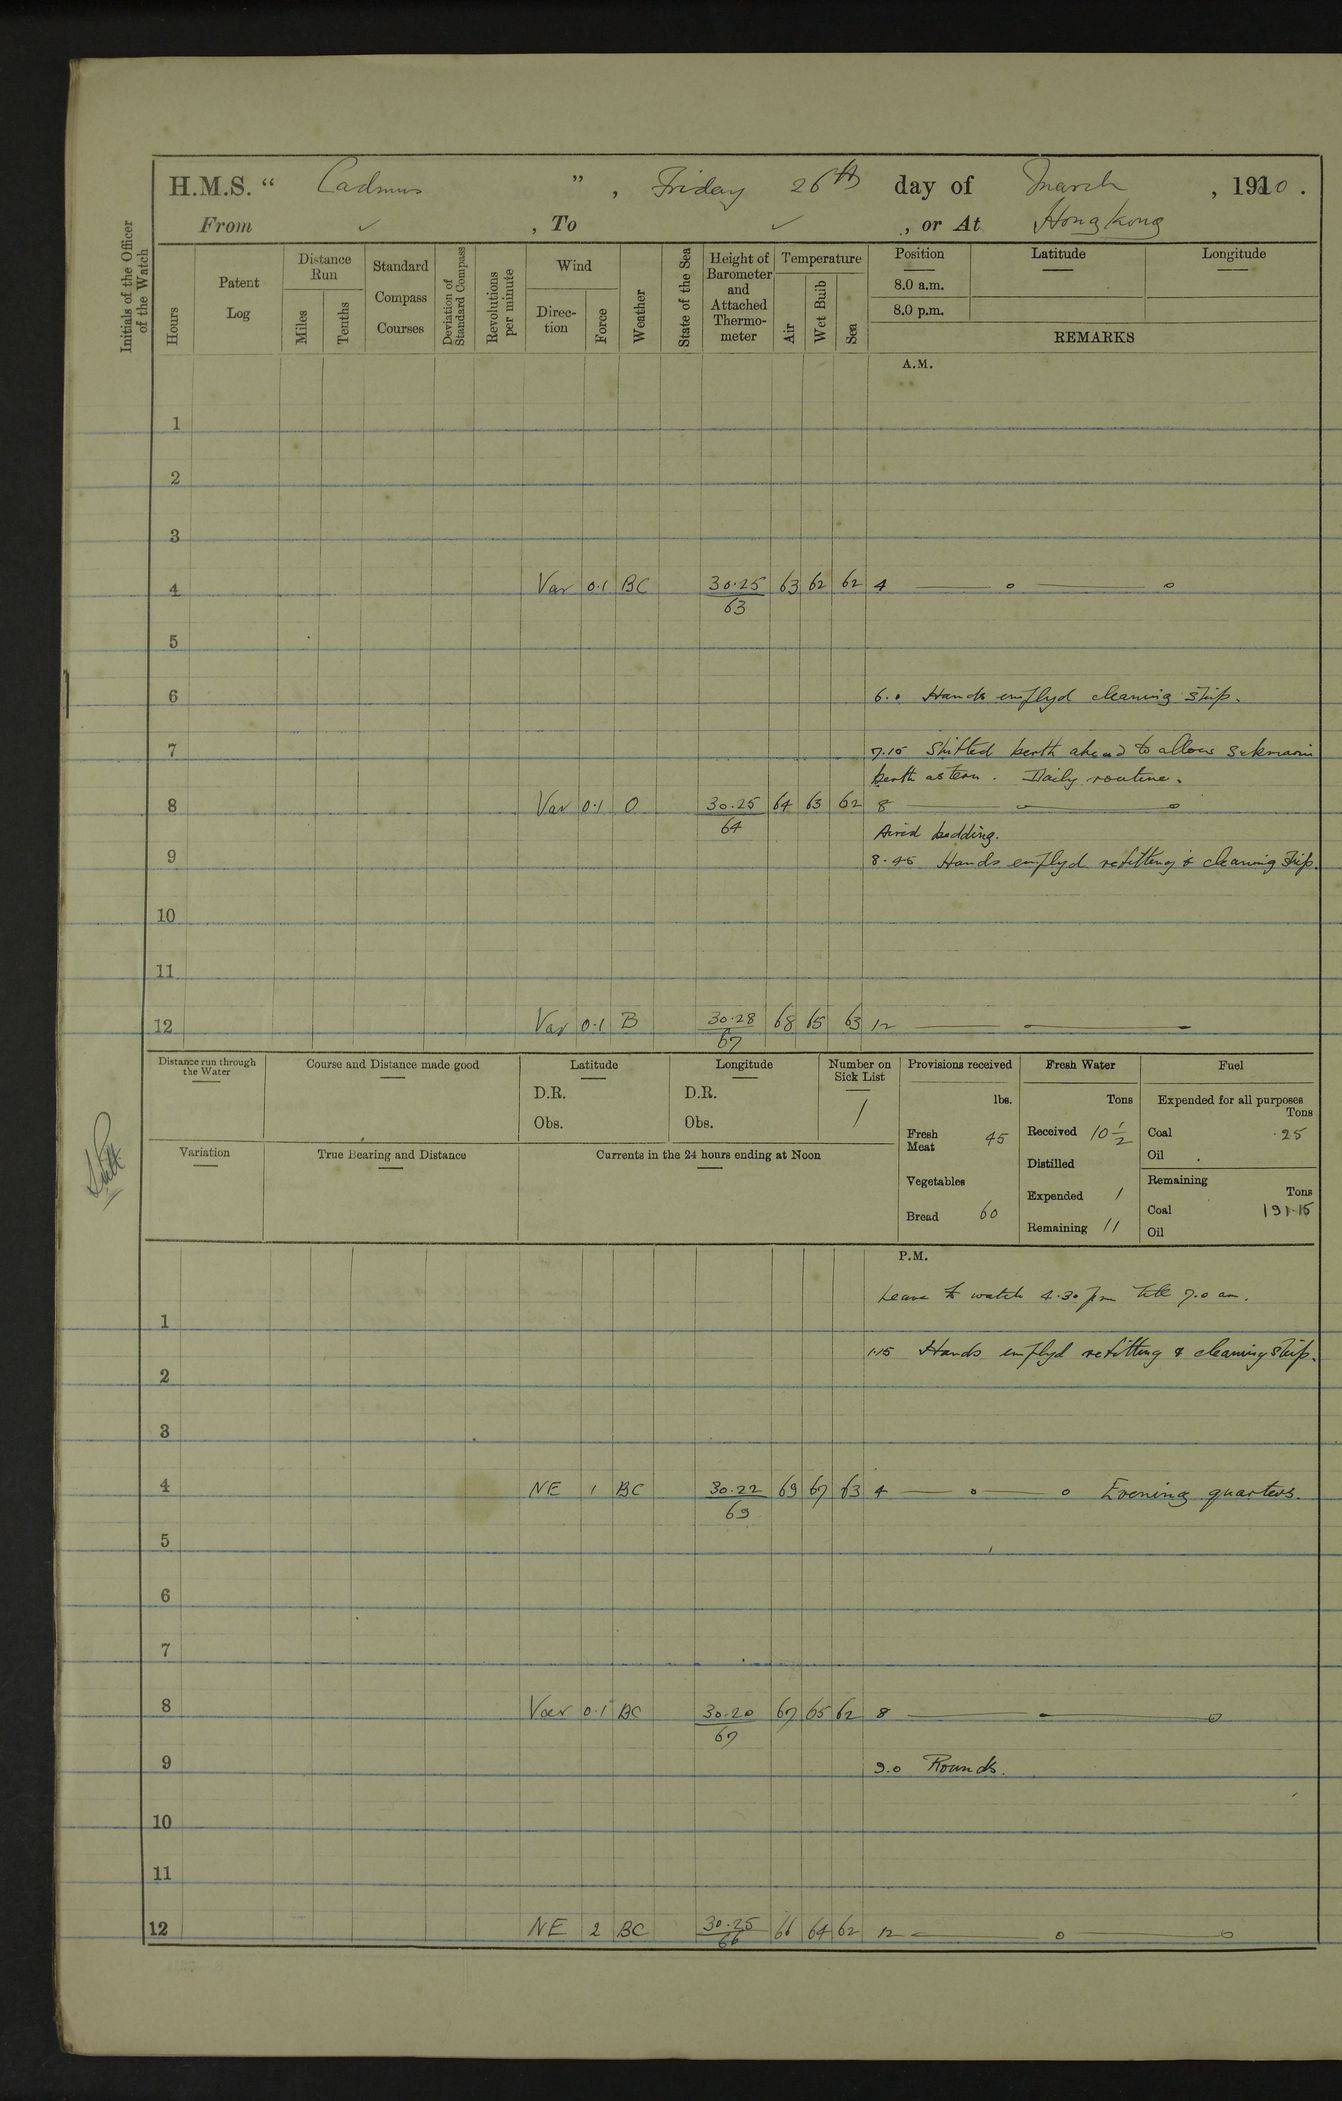 H.M.S. “ Cadmus ” , Friday 26th day of March , 1920 .
From ✓ , To ✓ , or At Hong Kong
Initials of the Officer of the Watch
Hours
Patent Log
Distance Run
Miles
Tenths
Standard Compass Courses
Deviation of Standard Compass
Revolutions per minute
Wind
Direction
Force
Weather
State of the Sea
Height of Barometer and Attached Thermometer
Temperature
Air
Wet Bulb
Sea
Position
8.0 a.m.
8.0 p.m.
Latitude
Longitude
REMARKS
A.M.
1
2
3
4 Var 0.1 BC 30.25/63 63 62 62 4
5
6 6.0 Hands employd cleaning ship.
7 7.15 Shifted berth ahead to allow submarin
berth astern. Daily routine.
8 Var 0.1 O 30.25/64 64 63 62 8
Aired bedding.
9 8.45 Hands employd refitting & cleaning ship.
10
11
12 Var 0.1 B 30.28/67 68 65 63 12
Distance run through the Water
Course and Distance made good
Latitude
D.R.
Obs.
Longitude
D.R.
Obs.
Number on Sick List
1
Provisions received
lbs.
Fresh Meat 45
Vegetables
Bread 60
Fresh Water
Tons
Received 10 1/2
Distilled
Expended 1
Remaining 11
Fuel
Expended for all purposes
Tons
Coal .25
Oil
Remaining
Tons
Coal 191.15
Oil
Variation
True Bearing and Distance
Currents in the 24 hours ending at Noon
P.M.
Leave to watch 4.30 pm till 7.0 am.
1
1.15 Hands employd refitting & cleaning ship.
2
3
4 NE 1 BC 30.22/69 69 67 63 4 Evening quarters.
5
6
7
8 Var 0.1 BC 30.20/67 67 65 62 8
9 9.0 Rounds.
10
11
12 NE 2 BC 30.25/66 66 64 62 12